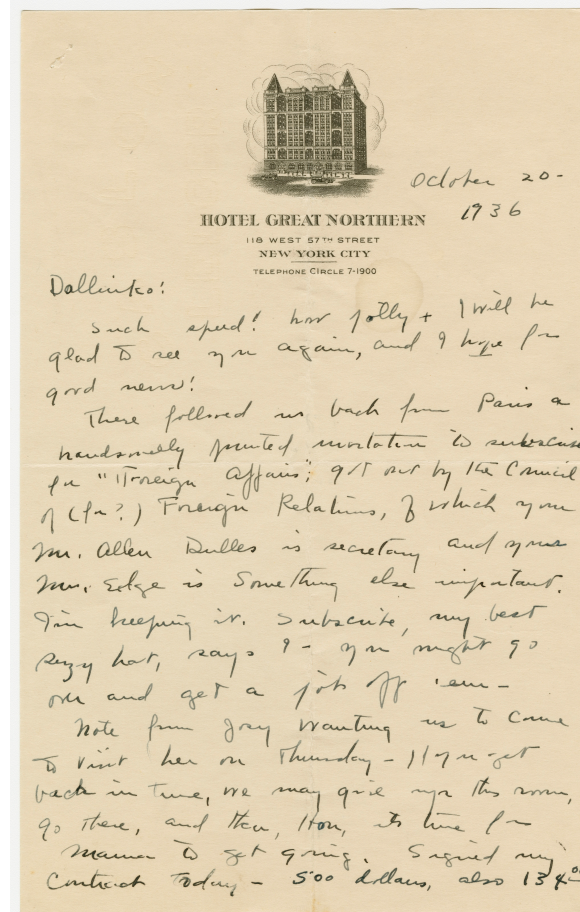 October 20-
1936
HOTEL GREAT NORTHERN
118 WEST 57TH STREET
NEW YORK CITY
TELEPHONE CIRCLE 7-1900
Dallinko!
Such speed! how jolly + I will be
glad to see you again, and I hope for
good news!
There followed us back from Paris a
handsomely printed invitation to subscribe
for "Foreign Affairs", got out by the Council
of (for?) Foreign Relations, of which your
Mr. Allen Dulles is secretary and your
Mr. Edge is something else important.
I'm keeping it. Subscribe, my best
hat, says I - you might go
on and get a job off 'em -
Note from Josy wanting us to come
to visit her on Thursday - If you get
back in time, we may give up this room,
go there, and then, Hon, its time for
Mama to get going. Signed my
contract today - 500 dollars, also 134